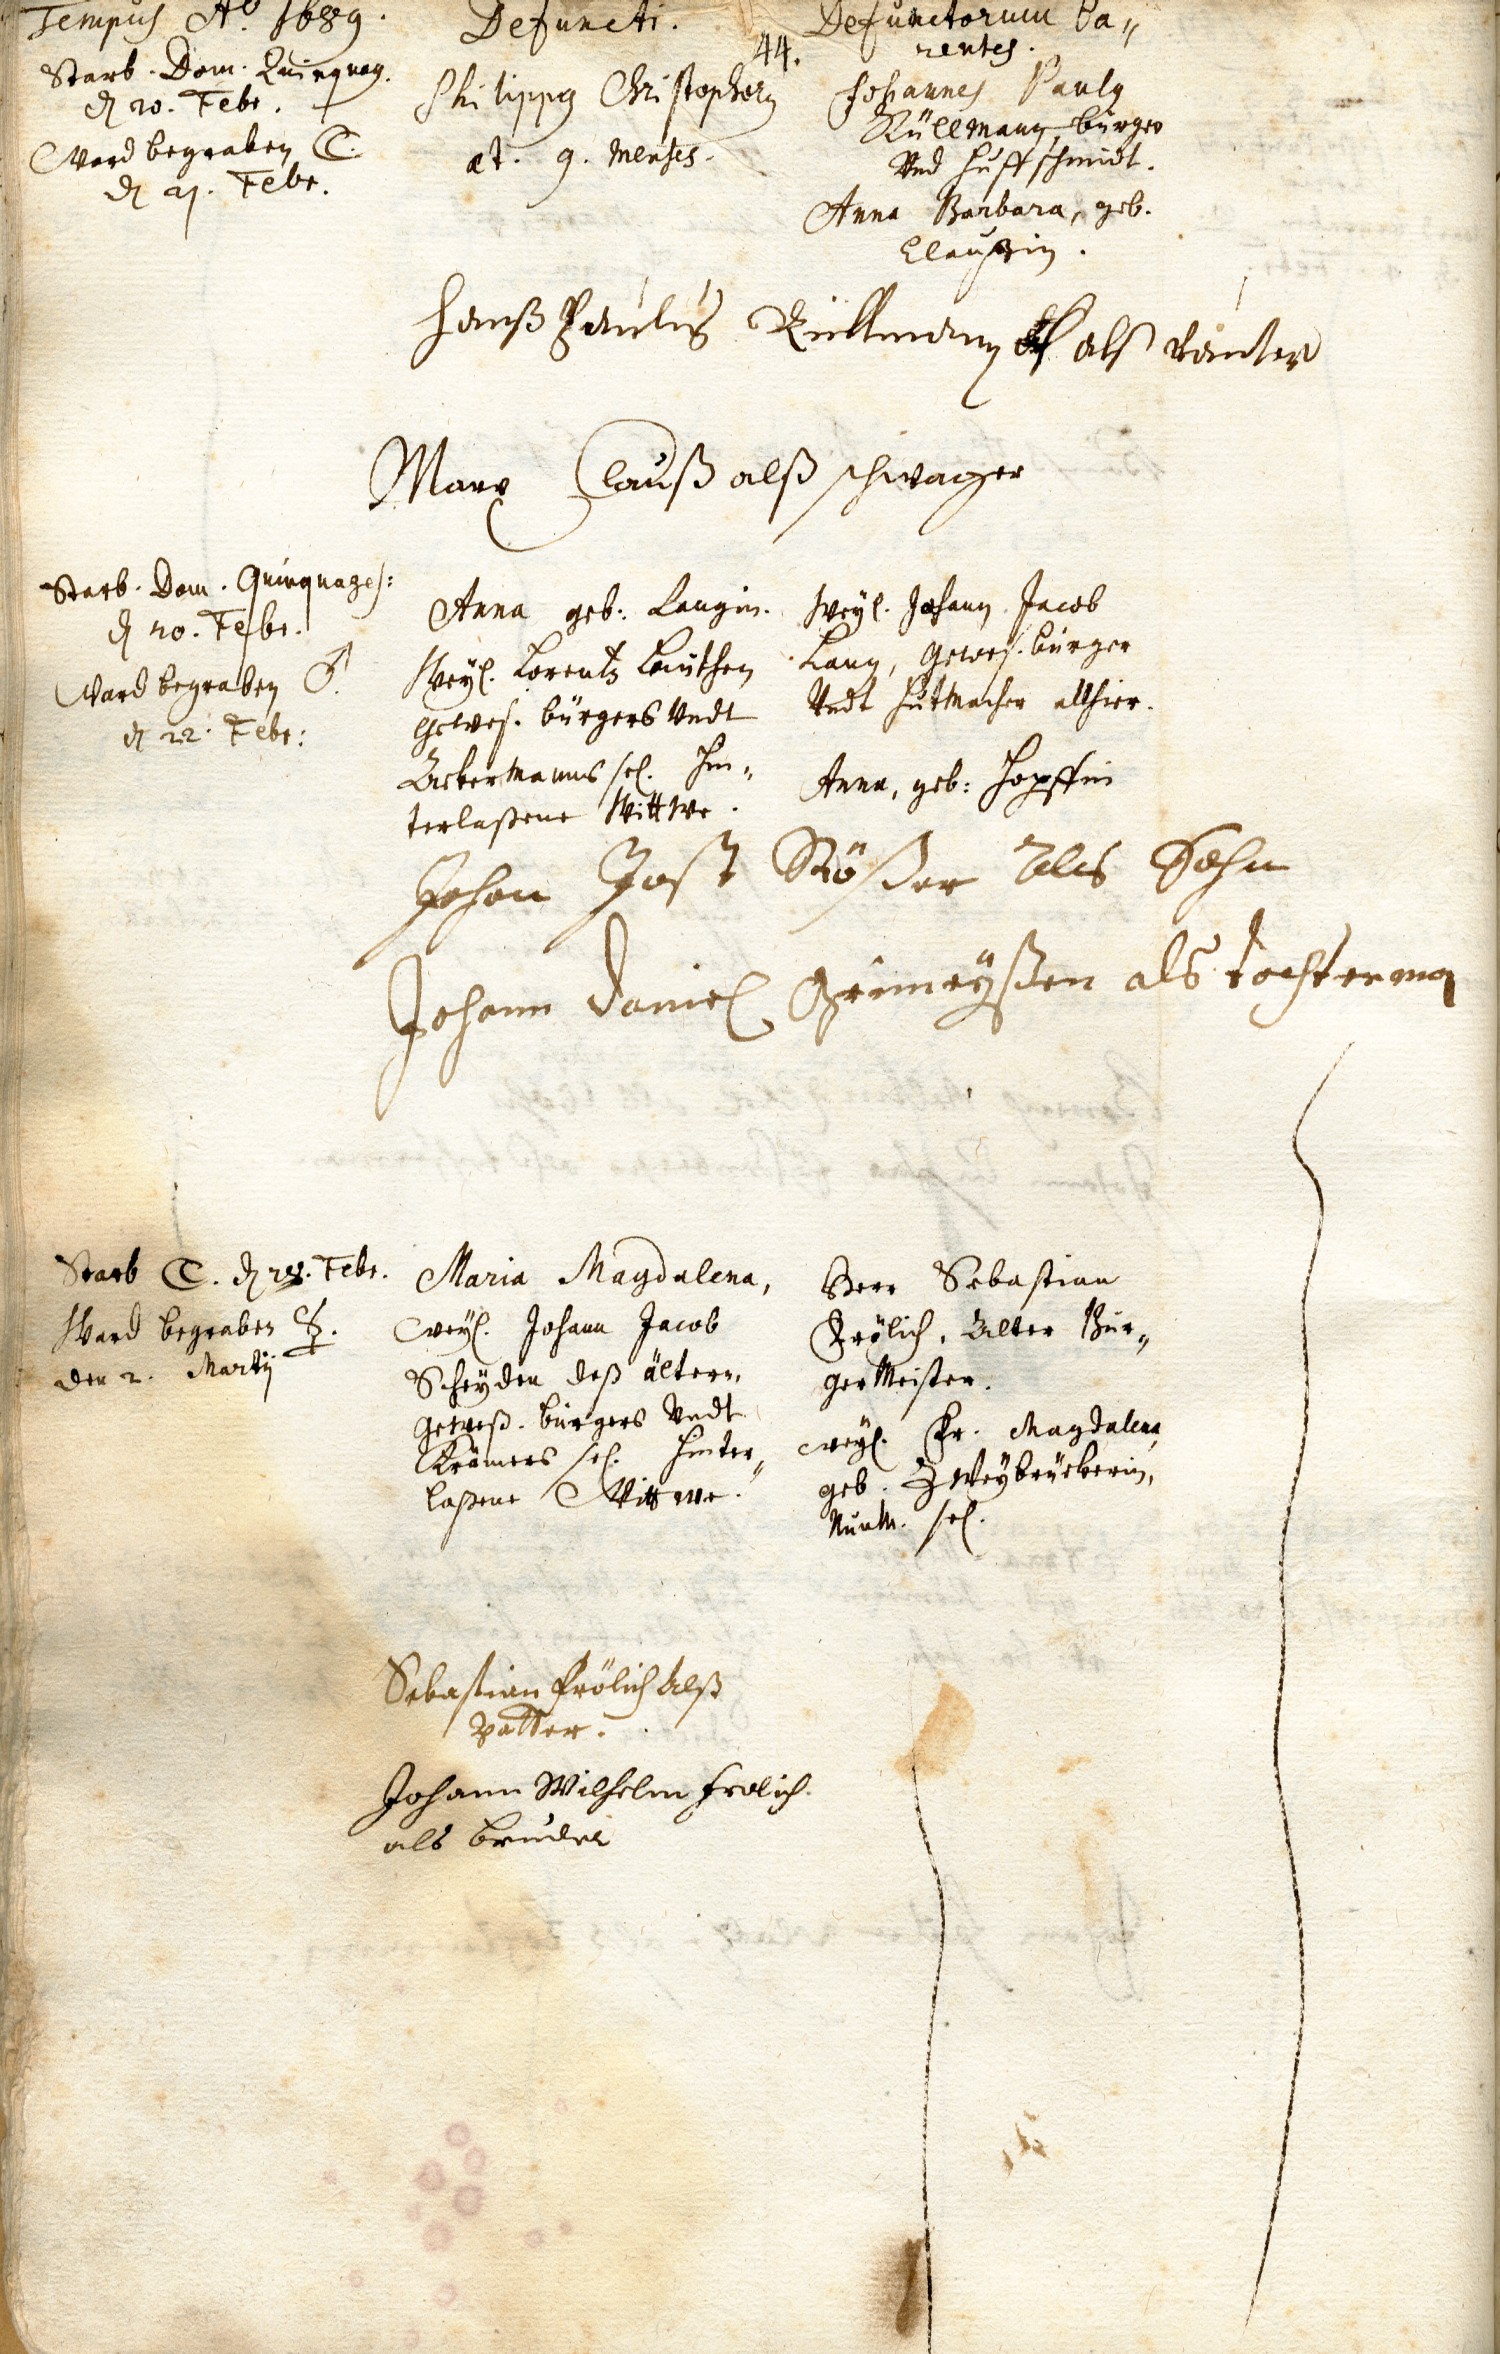 Tempus Aº. 1689.
Defuncti.
Defunctorum Pa„
rentes.
44.
Starb. Dom. Quinquag.
d 20. Febr.
Ward begraben ☾.
d 21. Febr.
Philippg Christophorg
æt. 9. Menses.
Johannes Paulg
Küllmann, bürger
Und Huffschmidt.
Anna Barbara, geb.
Claußin.
Hanß Paulus Küllmann alß vatter
Marx Clauß alß schwager
Starb. Dom. Quinquages:
d 20. Febr.
Ward begraben ♂.
d 22. Febr:
Anna geb: Langin.
Weyl. Lorentz
Gewes. bürgers Undt
Ackermanns sel. Hin„
terlaßene Wittwe.
Weyl. Johann Jacob
Lang, Gewes. bürger
Undt Hutmacher allhier.
Anna, geb: Hopffin
Johan Jost Rößer als Sohn
Johann Daniel als tochterman
Starb ☾. d 28. Febr.
Ward begraben ♄.
den 2. Martij
Maria Magdalena,
weyl. Johann Jacob
Scheyden deß ältern,
geweß. bürgers Undt
Krämers sel. Hinter„
laßene Wittwe.
Herr Sebastian
Frölich, Alter Bür„
germeister.
weyl. Fr. Magdalena
geb. Zweybrückerin,
Nunm. sel.
Sebastian Frölich Alß
Vatter.
Johann Wilhelm Frölich
als bruder